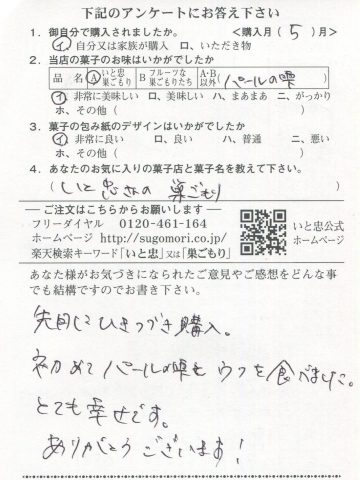 下記のアンケートにお答え下さい
1．御自分で購入されましたか。 ＜購入月（ 5 ）月＞
イ、自分又は家族が購入 ロ、いただき物
2．当店の菓子のお味はいかがでしたか
品 名 A いと忠巣ごもり B フルーツな巣ごもりたち A・B以外（パールの雫）
イ、非常に美味しい ロ、美味しい ハ、まあまあ ニ、がっかり
ホ、その他（ ）
3．菓子の包み紙のデザインはいかがでしたか
イ、非常に良い ロ、良い ハ、普通 ニ、悪い
ホ、その他（ ）
4．あなたのお気に入りの菓子店と菓子名を教えて下さい。
（いと忠さんの 巣ごもり）
― ご注文はこちらからお願いします ―
フリーダイヤル 0120-461-164
ホームページ http://sugomori.co.jp/
楽天検索キーワード「いと忠」又は「巣ごもり」
いと忠公式
ホームページ
あなた様がお気づきになられたご意見やご感想をどんな事
でも結構ですのでお書き下さい。
先月にひきつづき購入。
初めてパールの雫を食べました。
とても幸せです。
ありがとうございます！